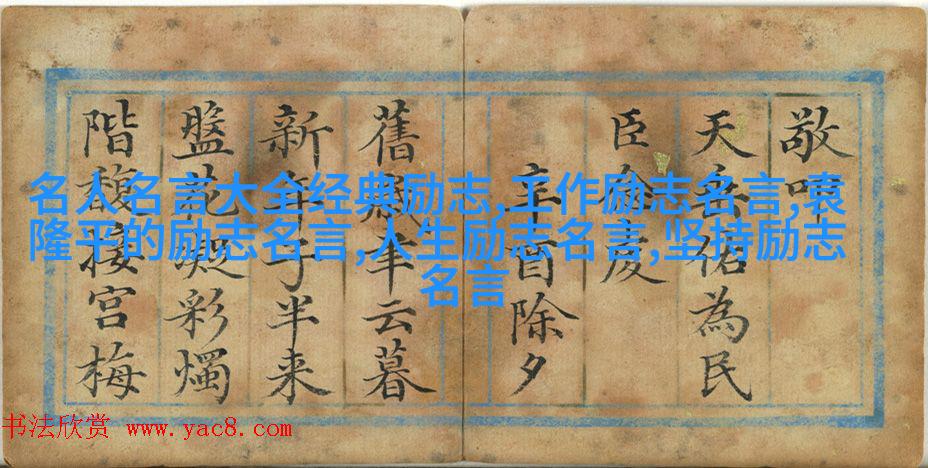 名人名言大全经典励志,工作励志名言,袁
隆平的励志名言,人生励志名言,坚持励志
名言
敬吟
天岳為民
臣慶
辛酉除夕
舊歲云暮
新年子半来
盤花凝彩燭
階馥接宮梅
书法欣赏 www.yac8.com